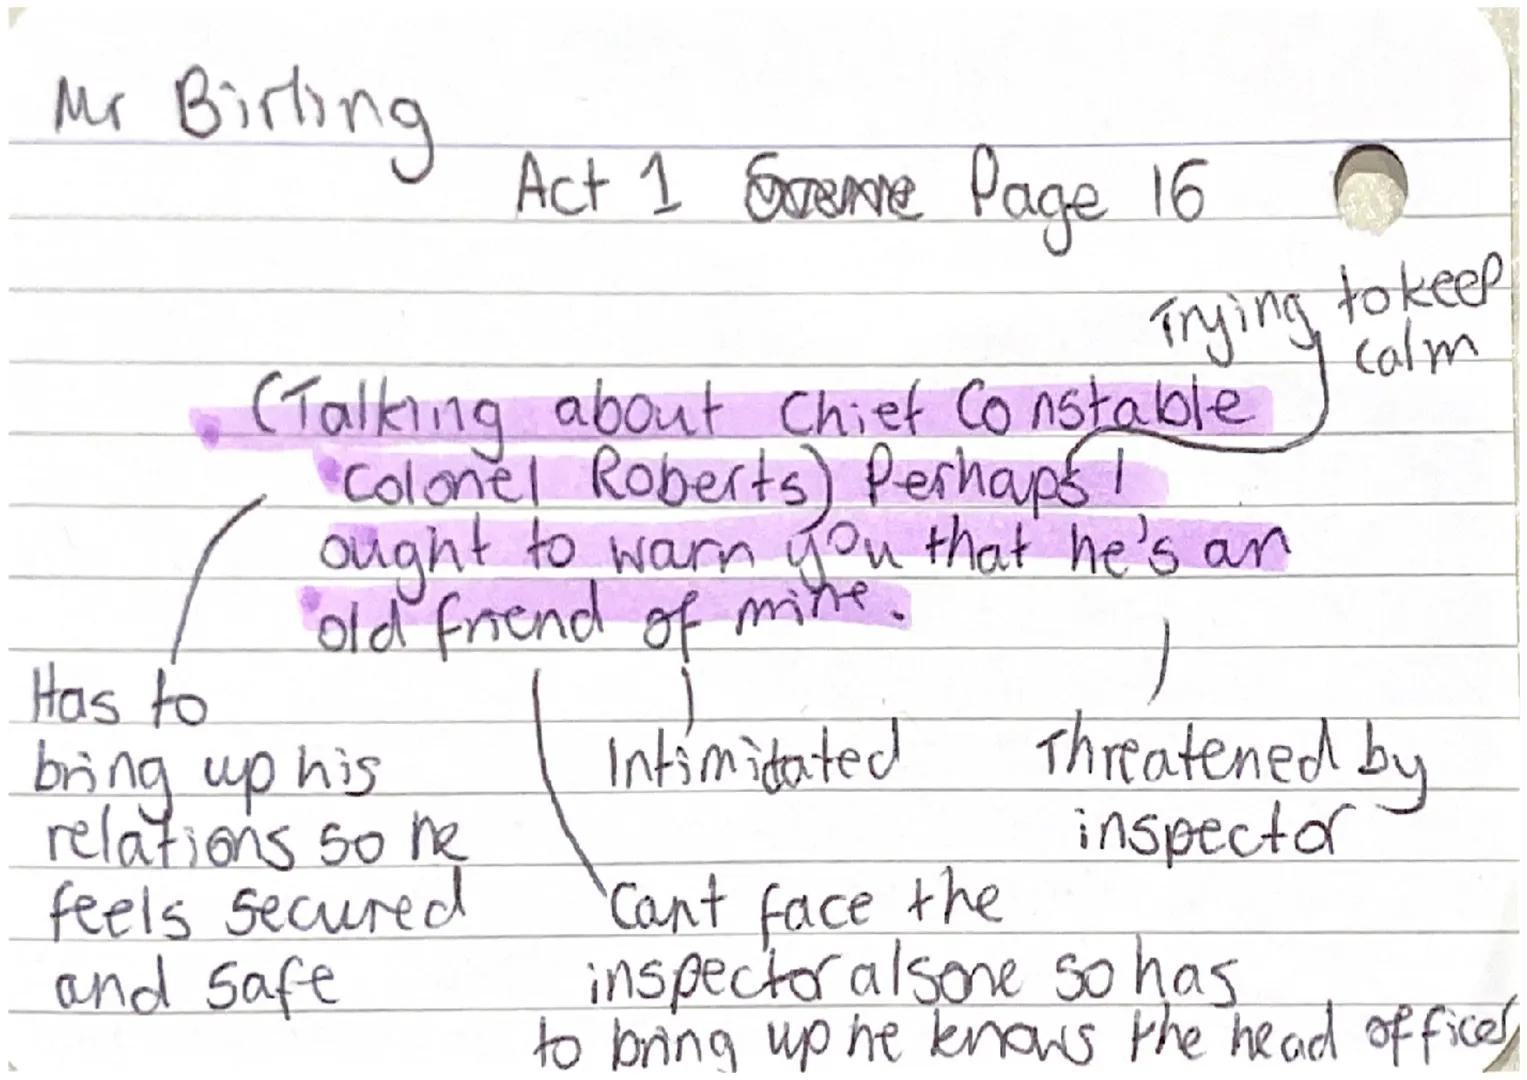 Mr Birling
Act 1 Page 16
Trying to keep
calm
(Talking about Chief Constable
Colonel Roberts) Perhaps I
ought to warn you that he's an
old friend of mine.
Has to
bring up his
relations so he
feels secured
and safe
Intimidated
Threatened by
inspector
Cant face the
inspector alsone so has
to bring up he knows the head officer